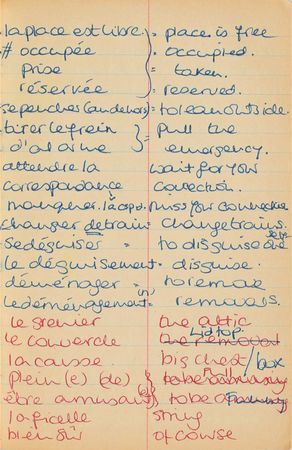 la place est libre. = place is free
# occupée = occupied.
prise = taken.
réservée = reserved.
se pencher (au dehors) = to lean outside.
tirer le frein = Pull the
d'alarme emergency.
attendre la wait for your
correspondance connection.
manquer. la cpd. miss your connection
changer de train change trains.
se déguiser = to disguise one self
le déguisement = disguise.
déménager = to remove
le déménagement = removals.
le grenier the attic
le couvercle Lid top.
la caisse big chest / box
Plein(e) (de) full
être amusant to be funny
la ficelle string
bien sûr of course